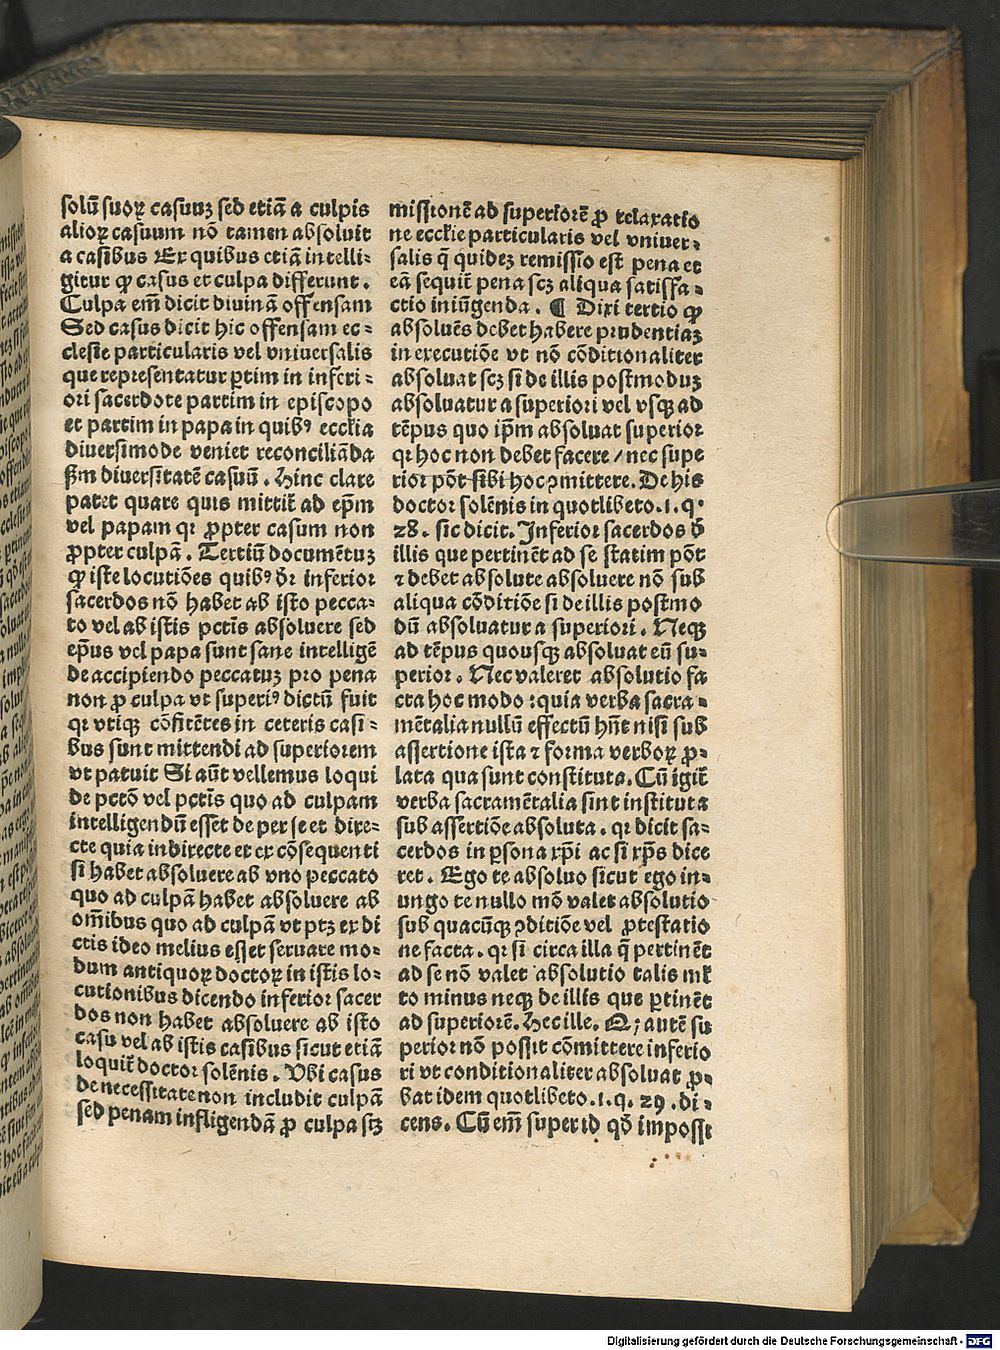 solū suoꝝ casuuꝫ sed etiā a culpis
alioꝝ casuum nō tamen absoluit
a casibus Ex quibus etiā intelli⸗
gitur ꝙ casus et culpa differunt.
Culpa em̄ dicit diuinā offensam
Sed casus dicit hic offensam ec⸗
clesie particularis vel vniuersalis
que representatur ꝑtim in inferi⸗
ori sacerdote partim in episcopo
et partim in papa in quibꝰ eccl̄ia
diuersimode veniet reconciliāda
ẜm diuersitatē casuū. Hinc clare
patet quare quis mittit̄ ad ep̄m
vel papam qꝛ ꝓpter casum non
ꝓpter culpā. Tertiū documētuꝫ
ꝙ iste locutiōes quibꝰ dr̄ inferior
sacerdos nō habet ab isto pecca⸗
to vel ab istis pctīs absoluere sed
ep̄us vel papa sunt sane intelligē
de accipiendo peccatuꝫ pro pena
non ꝓ culpa vt superiꝰ dictū fuit
qꝛ vtiqꝫ cōfitētes in ceteris casi⸗
bus sunt mittendi ad superiorem
vt patuit Si aūt vellemus loqui
de pctō vel pctīs quo ad culpam
intelligendū esset de per se et dire⸗
cte quia indirecte et ex cōsequenti
si habet absoluere ab vno peccato
quo ad culpā habet absoluere ab
om̄ibus quo ad culpā vt ptꝫ ex di
ctis ideo melius esset seruare mo⸗
dum antiquoꝝ doctoꝝ in istis lo⸗
cutionibus dicendo inferior sacer
dos non habet absoluere ab isto
casu vel ab istis casibus sicut etiā
loquit̄ doctor solēnis. Vbi casus
de necessitate non includit culpā
sed penam infligendā ꝓ culpa sꝫ
missionē ad superiorē ꝓ relaxatio
ne eccl̄ie particularis vel vniuer⸗
salis q̄ quideꝫ remissio est pena et
eā sequit̄ pena scꝫ aliqua satisfa⸗
ctio iniūgenda. ¶ Dixi tertio ꝙ
absoluēs debet habere prudentiaꝫ
in executiōe vt nō cōditionaliter
absoluat scꝫ si de illis postmoduꝫ
absoluatur a superiori vel vsqꝫ ad
tēpus quo ip̄m absoluat superior
qꝛ hoc non debet facere / nec supe
rior pōt sibi hoc ꝯmittere. De his
doctor solēnis in quotlibeto. 1. q.
28. sic dicit. Inferior sacerdos d̄
illis que pertinēt ad se statim pōt
⁊ debet absolute absoluere nō sub
aliqua cōditiōe si de illis postmo
dū absoluatur a superiori. Neqꝫ
ad tēpus quousqꝫ absoluat eū su⸗
perior. Nec valeret absolutio fa
cta hoc modo : quia verba sacra⸗
mētalia nullū effectū hn̄t nisi sub
assertione ista ⁊ forma verboꝝ ꝓ⸗
lata qua sunt constituta. Cū igit̄
verba sacramētalia sint instituta
sub assertiōe absoluta. qꝛ dicit sa⸗
cerdos in ꝑsona xp̄i ac si xp̄s dice
ret. Ego te absoluo sicut ego in⸗
ungo te nullo mō valet absolutio
sub quacūqꝫ ꝯditiōe vel ꝓtestatio
ne facta. qꝛ si circa illa q̄ pertinēt
ad se nō valet absolutio talis ml̄
to minus neqꝫ de illis que ꝑtinēt
ad superiorē. Hec ille. Qꝫ autē su
perior nō possit cōmittere inferio
ri vt conditionaliter absoluat ꝓ⸗
bat idem quotlibeto. 1. q. 29. di⸗
cens. Cū em̄ super id qd̄ impossi
Digitalisierung gefördert durch die Deutsche Forschungsgemeinschaft - DFG